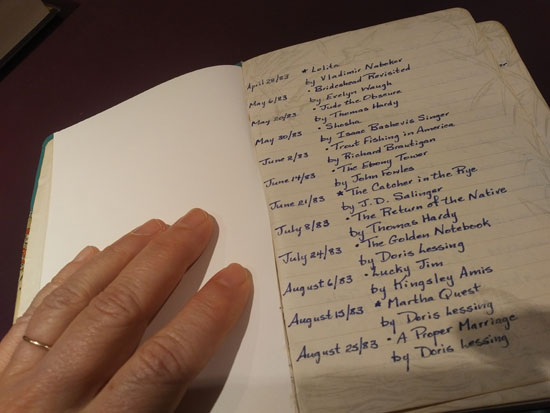 April 28/83 * Lolita
by Vladimir Nabokov
May 6/83 • Brideshead Revisited
by Evelyn Waugh
May 20/83 • Jude the Obscure
by Thomas Hardy
May 30/83 • Shosha
by Isaac Bashevis Singer
June 2/83 • Trout Fishing in America
by Richard Brautigan
June 14/83 • The Ebony Tower
by John Fowles
June 21/83 * The Catcher in the Rye
by J.D. Salinger
July 8/83 • The Return of the Native
by Thomas Hardy
July 24/83 • The Golden Notebook
by Doris Lessing
August 6/83 • Lucky Jim
by Kingsley Amis
August 15/83 * Martha Quest
by Doris Lessing
August 25/83 • A Proper Marriage
by Doris Lessing